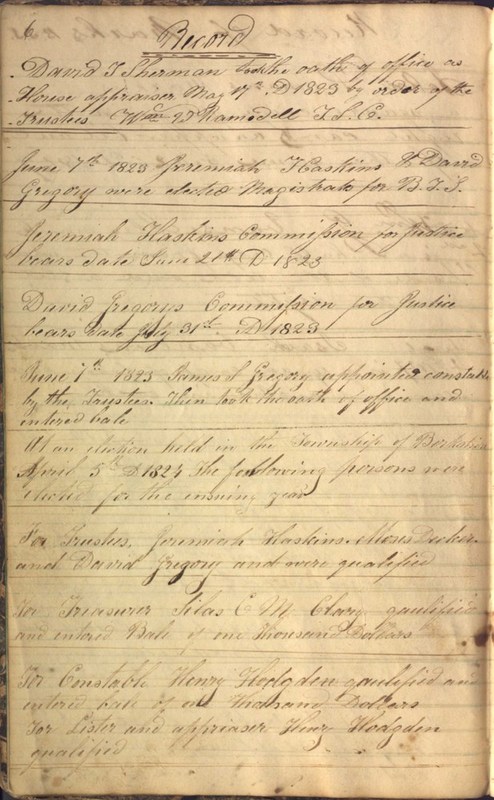 6
Record
David T Sherman took the oath of office as
House appraiser May 17th D 1823 by order of the
Trustees Wm D Ramsdell T. C.
June 7th 1823 Jeremiah Haskins & David
Gregory were elected Magistrate for B. T. S.
Jeremiah Haskins Commission for Justice
bears date June 21st D 1823
David Gregorys Commission for Justice
bears date July 31st AD 1823
June 7th 1823 James Gregory appointed constable
by the Trustees. Then took the oath of office and
entered bale
At an election held in the Township of Berkshire
April 5th D 1824 The following persons were
elected for the ensuing year
For Trustees, Jeremiah Haskins. Decker
and David Gregory and were qualified
For Treasurer Silas C M Clary quulified
and entered Bale of one thousand Dollars
For Constable Henry Hodgden quulified and
entered bale of one thousand Dollars
For Lister and appriaser Henry Hodgden
qualified